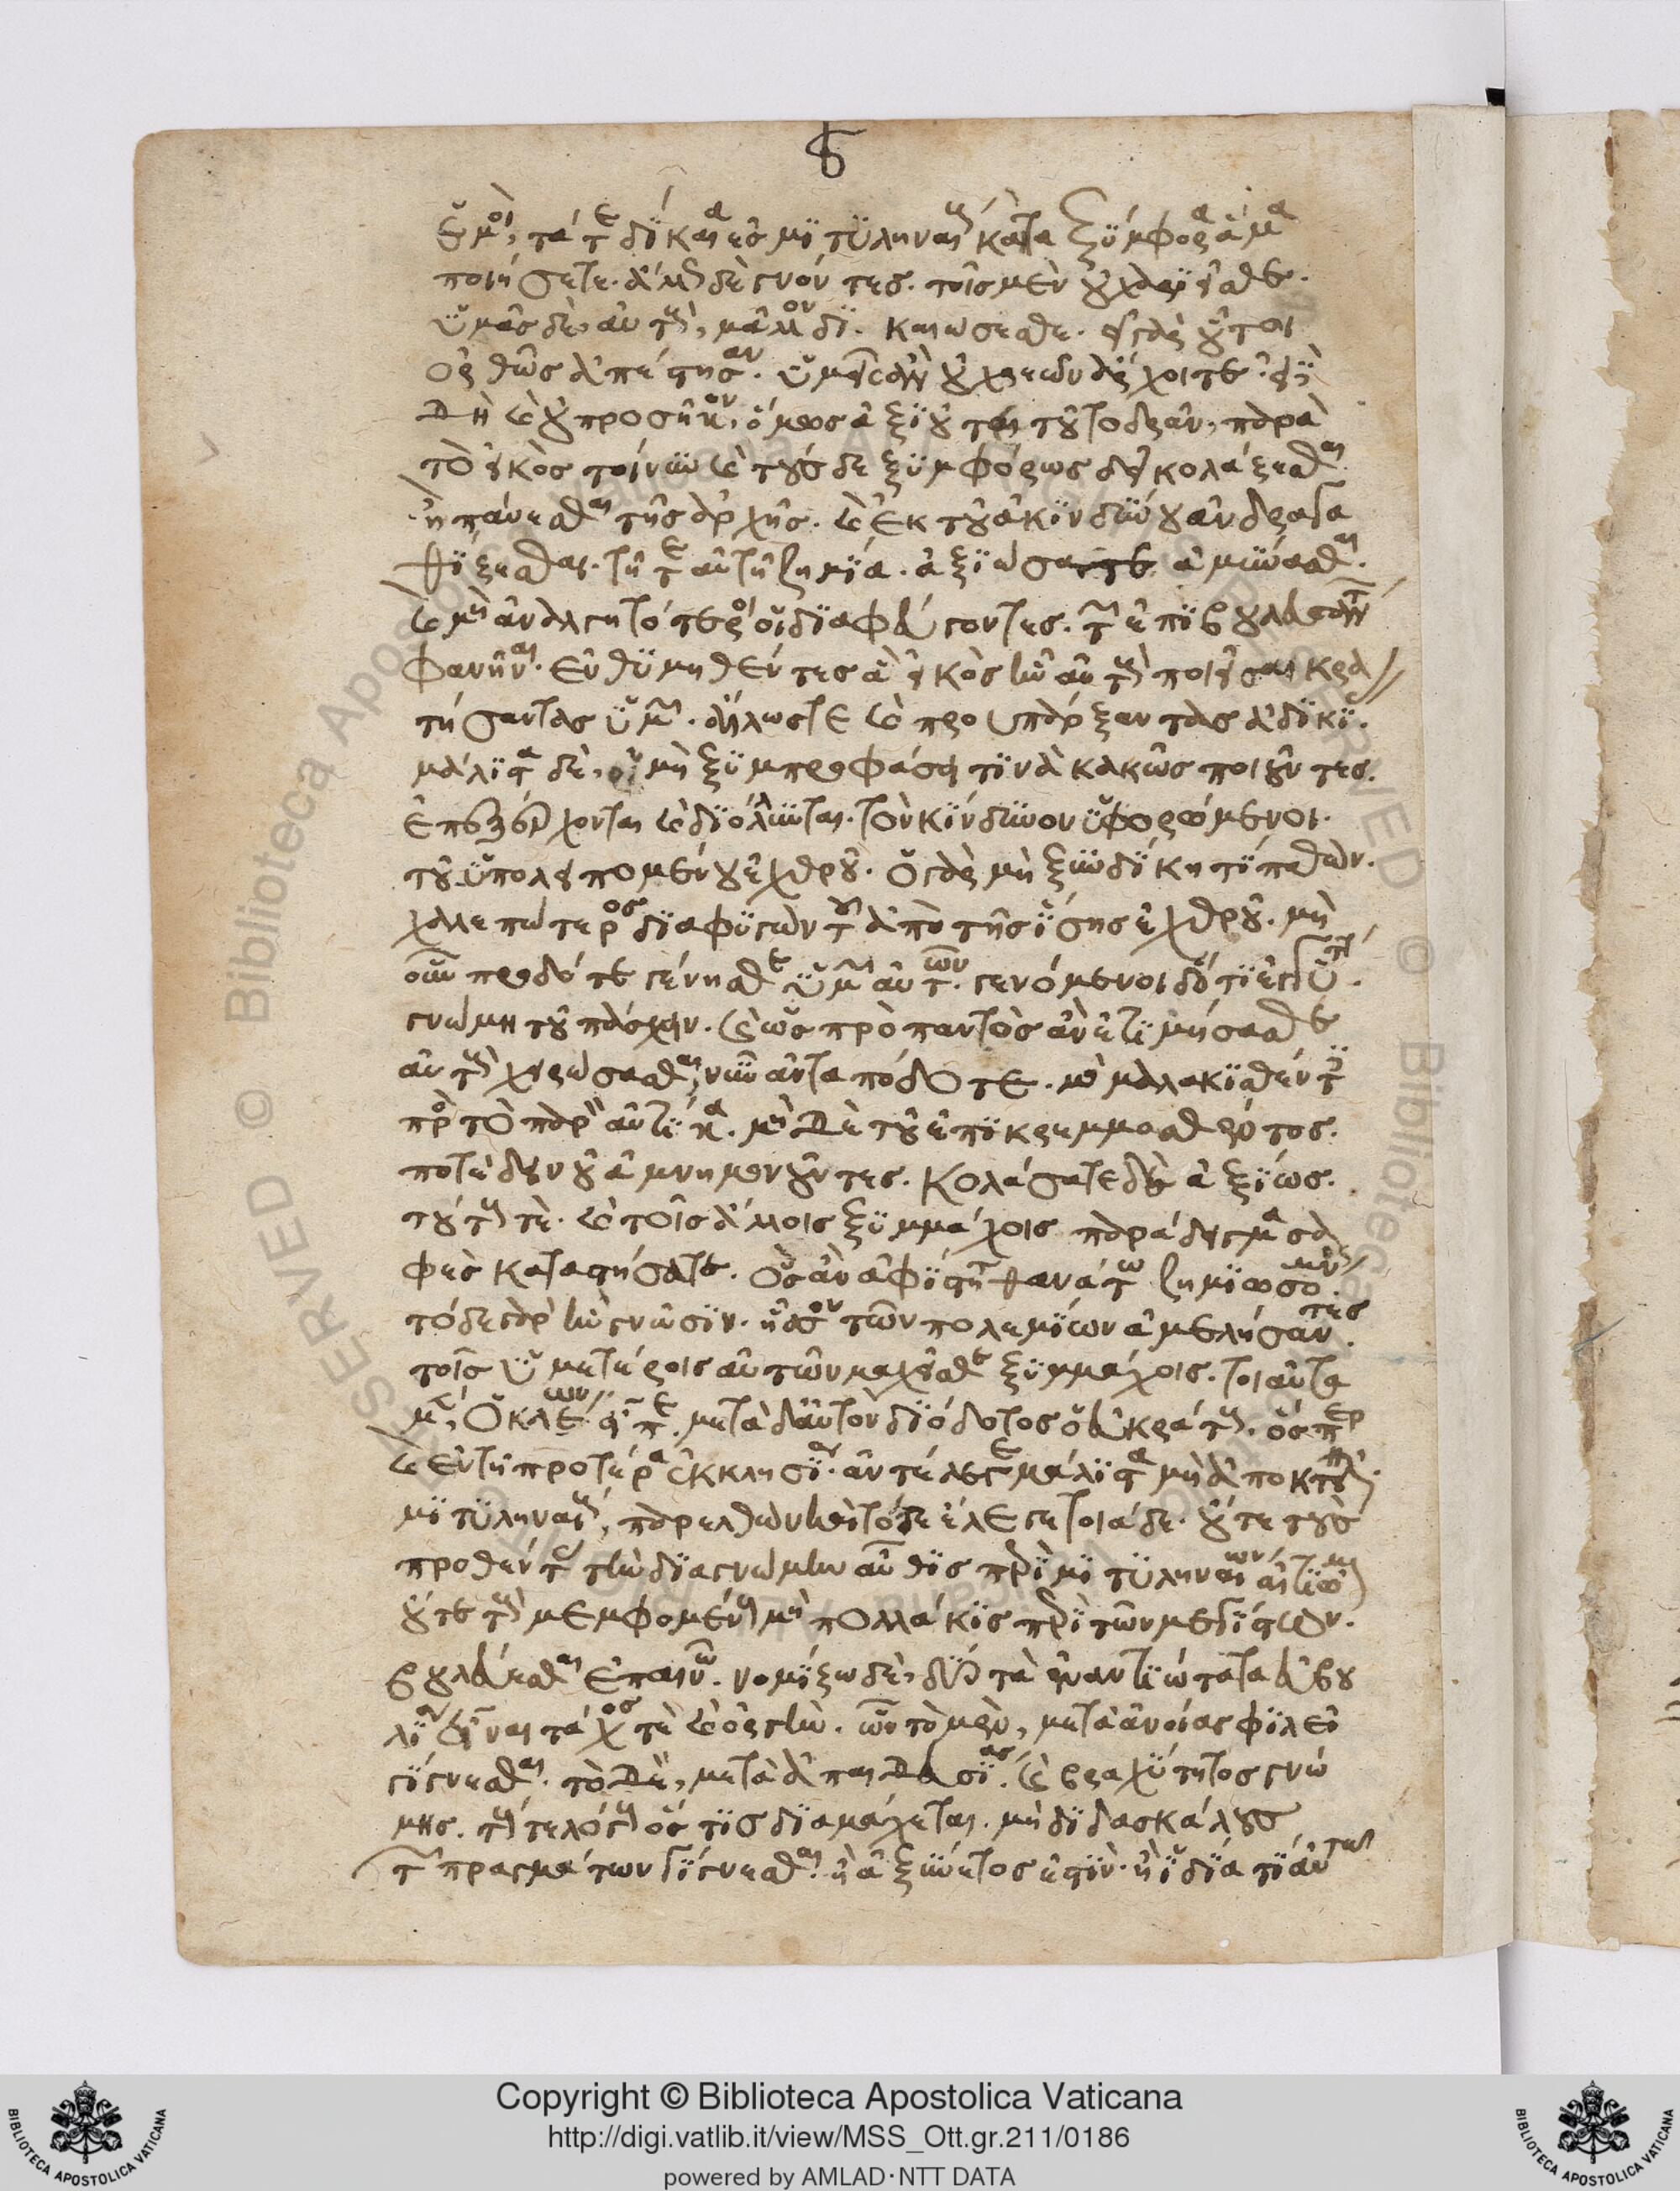 ϛ
ἐμοί, τά τε δίκαια ἐς μιτυληναίους καὶ τὰ ξύμφορα ἅμα
ποιήσετε. ἄλλως δὲ γνόντες. τοῖς μὲν οὐ χαριεῖσθε.
ὑμᾶς δὲ αὐτοὺς, μᾶλλον δικαιώσεσθε. εἰ γὰρ οὗτοι
ὀρθῶς ἀπέστησαν. ὑμεῖς ἂν οὐ χρεὼν ἄρχοιτε. εἰ
δὴ καὶ οὐ προσῆκον, ὅμως ἀξιοῦτε τοῦτο δρᾶν, παρὰ
τὸ εἰκός τοίνυν καὶ τούσδε ξυμφόρως δεῖ κολάζεσθαι.
ἢ παύεσθαι τῆς ἀρχῆς. καὶ ἐκ τοῦ ἀκινδύνου ἀνδραγα
θίζεσθαι. τῇ τε αὐτῇ ζημίᾳ. ἀξιώσατε ἀμύνασθαι.
καὶ μὴ ἀναλγητότεροι οἱ διαφεύγοντες. τῶν ἐπιβουλευσάντων
φανῆναι. ἐνθυμηθέντες ἃ εἰκὸς ἦν αὐτοὺς ποιῆσαι κρα
τήσαντας ὑμῶν. ἄλλως τε καὶ προϋπάρξαντας ἀδικίας.
μάλιστα δὲ, οἱ μὴ ξὺν προφάσει τινὰ κακῶς ποιοῦντες.
ἐπεξέρχονται καὶ διόλλυνται. τὸν κίνδυνον ὑφορώμενοι.
τοῦ ὑπολειπομένου ἐχθροῦ. ὁ γὰρ μὴ ξὺν δίκῃ τι παθὼν.
χαλεπώτερος διαφυγὼν τοῦ ἀπὸ τῆς ἴσης ἐχθροῦ. μὴ
οὖν προδόται γένησθε ὑμῶν αὐτῶν. γενόμενοι δ' ὅτι ἐγγύτατα
γνώμῃ τοῦ πάσχειν. καὶ ὡς πρὸ παντὸς ἂν ἐτιμήσασθε
αὐτοὺς χειρώσασθαι, νῦν ἀνταπόδοτε. μὴ μαλακισθέντες
πρὸς τὸ παρὸν αὐτίκα. μηδὲ τοῦ ἐπικρεμμασθέντος.
ποτὲ δεινοῦ ἀμνημονοῦντες. κολάσατε δὲ ἀξίως.
τούτους τὲ. καὶ τοῖς ἄλλοις ξυμμάχοις παράδειγμα σα
φὲς καταστήσατε. ὃς ἂν ἀφίστηται θανάτω ζημιωσόμενον.
τόδε γὰρ ἢν γνῶσιν. ἧσσον τῶν πολεμίων ἀμελήσαντες
τοῖς ὑμετέροις αὐτῶν μαχεῖσθε ξυμμάχοις. τοιαῦτα
μὲν, ὁ κλέων εἶπε. μετὰ δ' αὐτὸν διόδοτος ὁ εὐκράτους. ὅσπερ
καὶ ἐν τῇ προτέρα ἐκκλησίᾳ. ἀντέλεγε μάλιστα μὴ ἀποκτεῖναι
μιτυληναίους, παρελθὼν καὶ τότε ἔλεγε τοιάδε. οὔτε τοὺς
προθέντας τὴν διαγνώμην αὖθις περὶ μιτυληναίων αἰτιῶμαι
οὔτε τοὺς μεμφομένους μὴ πολλάκις περὶ τῶν μεγίστων.
βουλεύεσθαι ἐπαινῶ. νομίζω δὲ, δύο τὰ ἐναντιώτατα εὐβου
λίᾳ εἶναι τάχος τὲ καὶ ὀργὴν. ὧν τὸ μὲν, μετὰ ἀνοίας φιλεῖ
γίγνεσθαι. τὸ δὲ, μετὰ ἀπαιδευσίας καὶ βραχύτητος γνώ
μης. τούς τε λόγους ὅς τις διαμάχεται. μὴ διδασκάλους
τῶν πραγμάτων γίγνεσθαι. ἢ ἀξύνετος ἐστὶν. ἢ ἰδίᾳ τι αὐτῷ